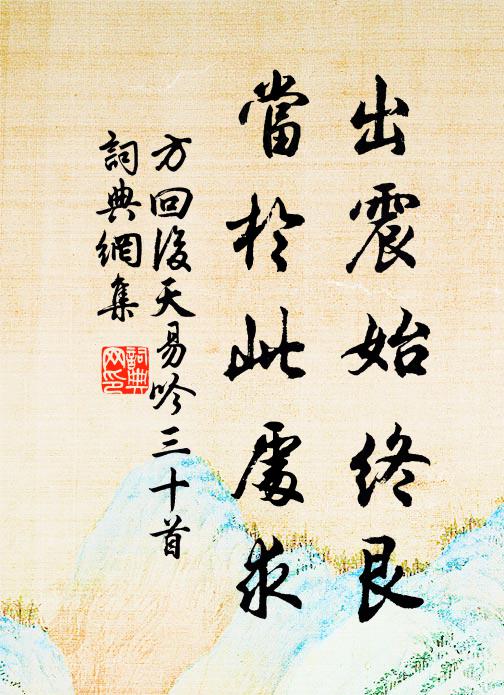 出震始終艮
當於此處求
方回後天易吟三十首
詞典網集
詞典網印